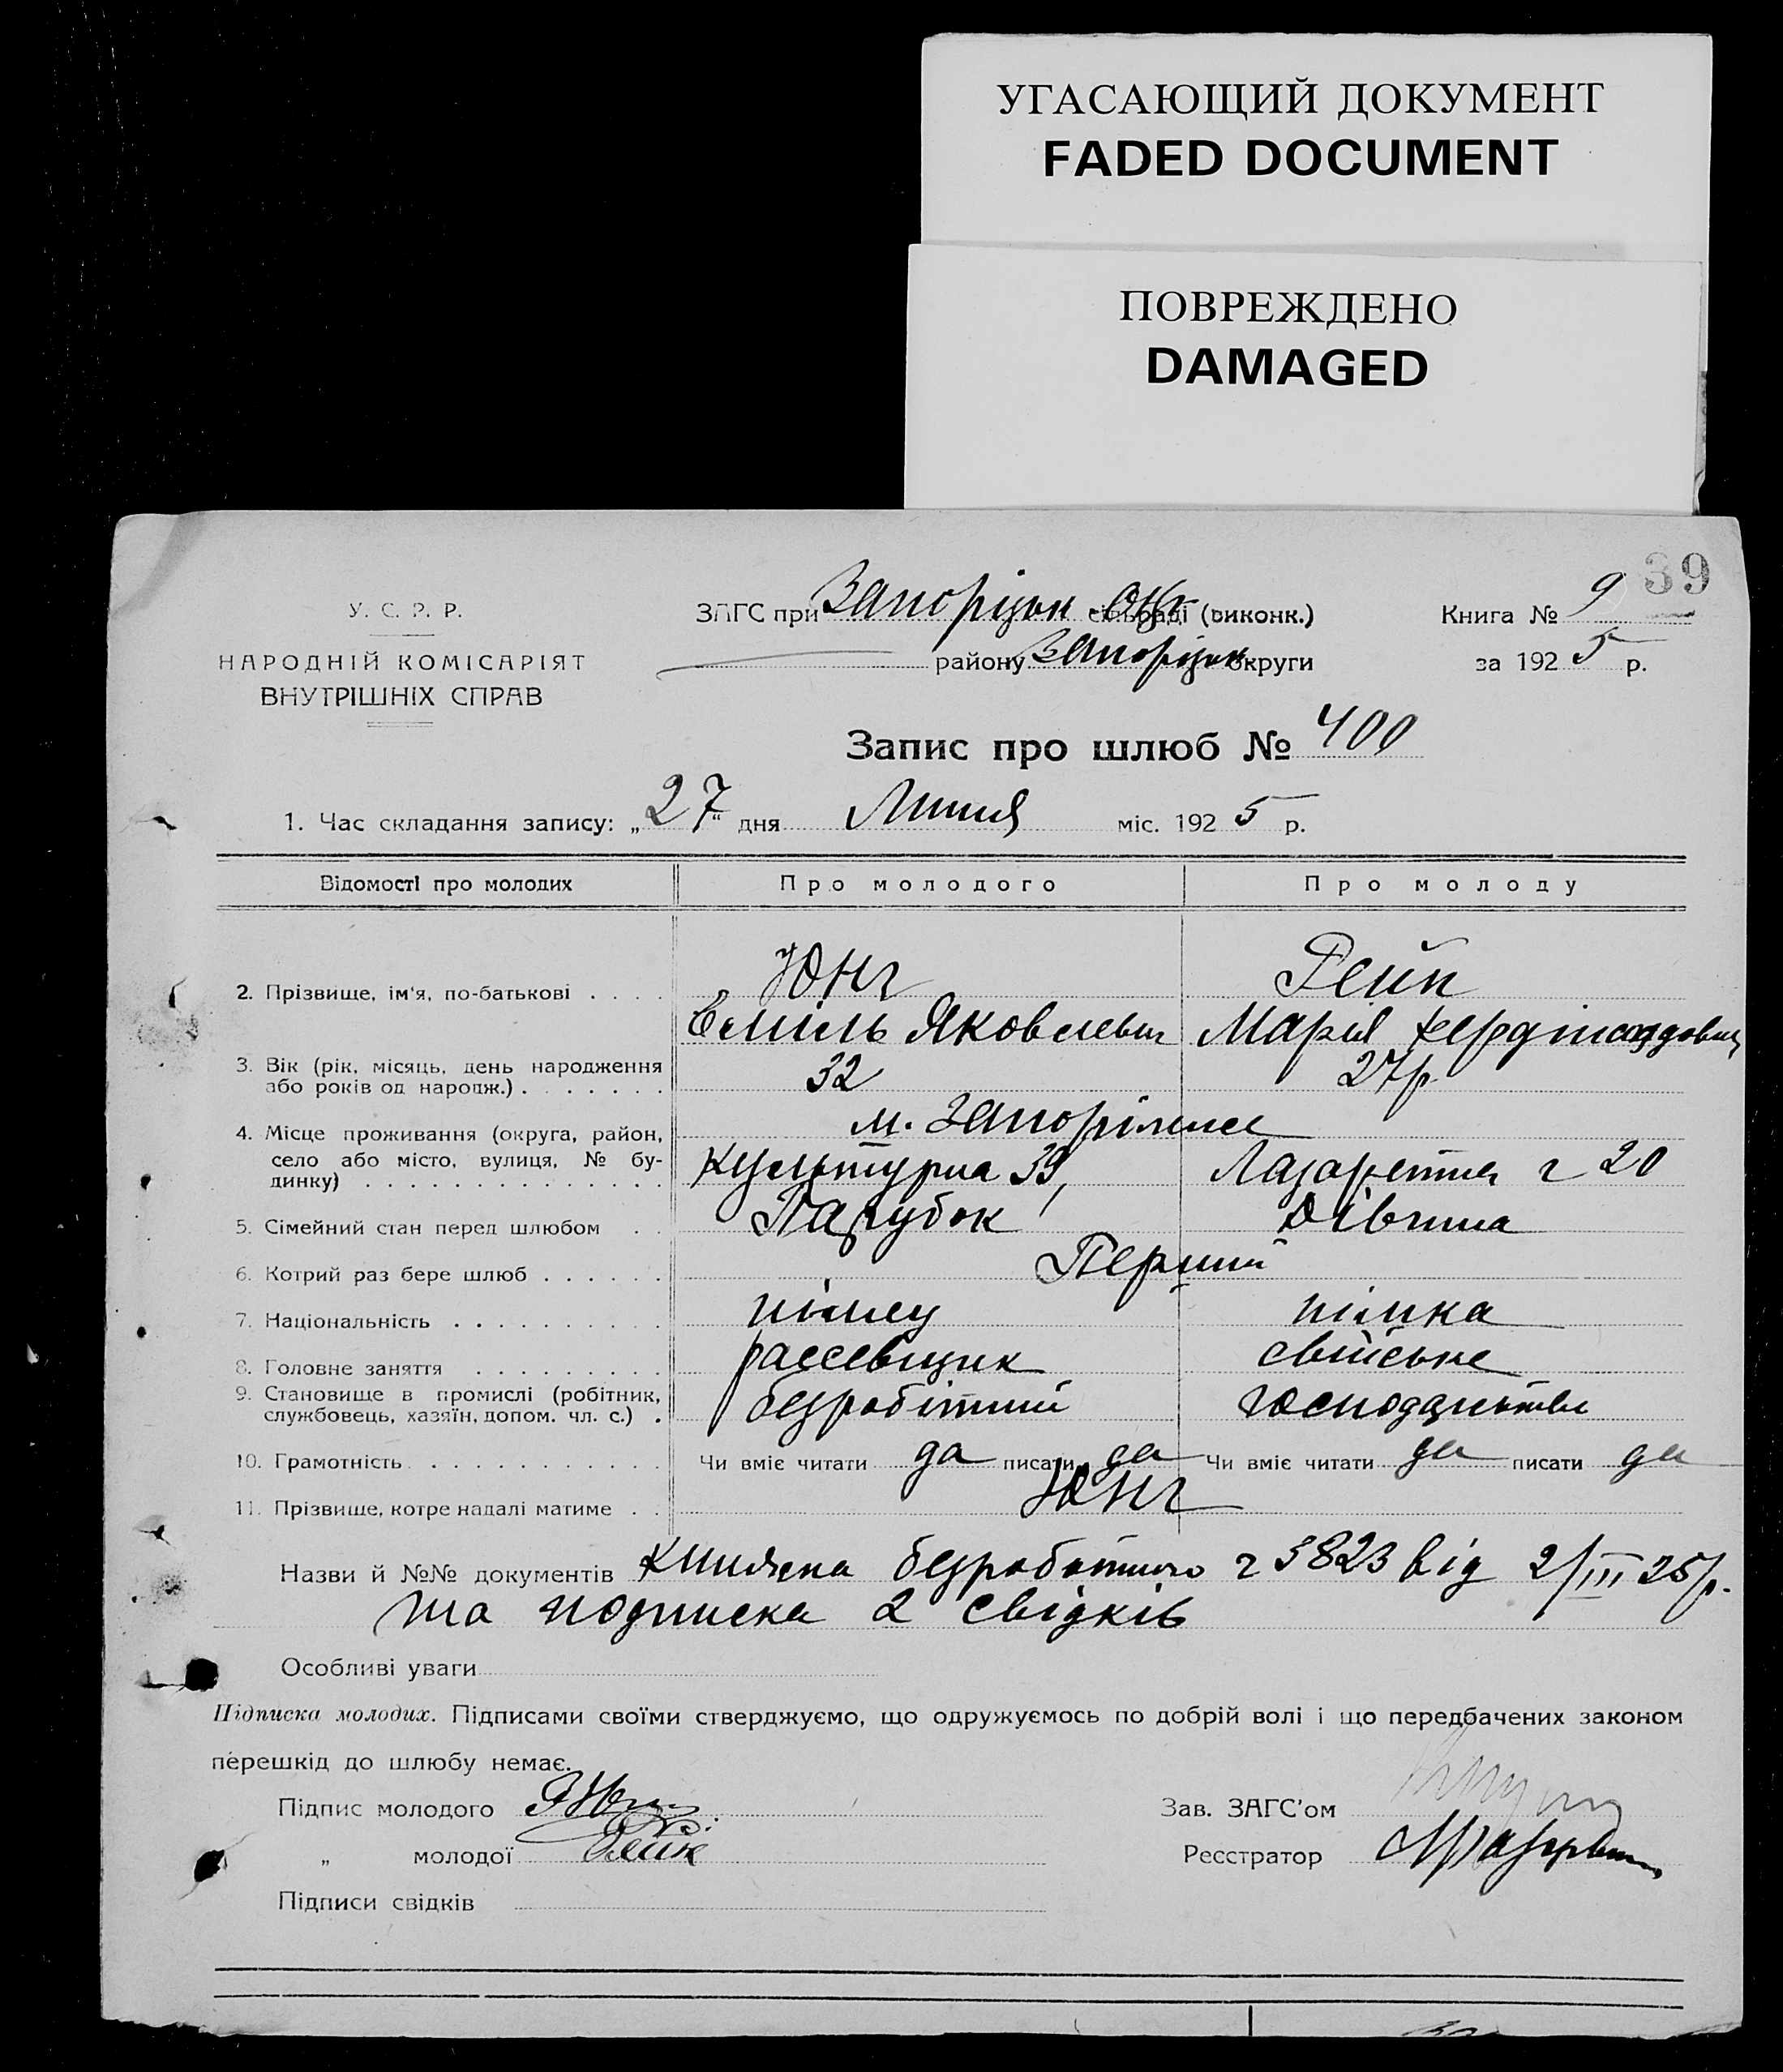 УГАСАЮЩИЙ ДОКУМЕНТ
FADED DOCUMENT
ПОВРЕЖДЕНО
DAMAGED
39
У. С. Р. Р.
НАРОДНІЙ КОМІСАРІЯТ
ВНУТРІШНІХ СПРАВ
ЗАГС при Запорізьк. Окр. сільраді (виконк.)
Книга № 9
району Запорізьк. округи
за 1925 р.
Запис про шлюб № 400
1. Час складання запису: „27“ дня Липня міс. 1925 р.
Відомості про молодих Про молодого Про молоду
Юнг Рейп
2. Прізвище, ім'я, по-батькові . . . .
Еміль Яковлевич Марія Фердінандовна
3. Вік (рік, місяць, день народження 32 27р.
або років од народж.) . . . . . . .
м. Запоріжже
4. Місце проживання (округа, район,
село або місто, вулиця, № бу-
динку) . . . . . . . . . . . . . . Культурна 39, Лазаретна ч 20
5. Сімейний стан перед шлюбом . . Парубок Дівчина
6. Котрий раз бере шлюб . . . . . . Перший
7. Національність . . . . . . . . . . німец німка
8. Головне заняття . . . . . . . . . свійське
9. Становище в промислі (робітник,
службовець, хазяїн, допом. чл. с.) . безробітний господарство
10. Грамотність . . . . . . . . . . . Чи вміє читати да писати да Чи вміє читати да писати да
11. Прізвище, котре надалі матиме . . Юнг
Назви й №№ документів Книжка безработного ч 3823 від 2/III 25р.
та подписка 2 свідків
Особливі уваги
Підписка молодих. Підписами своїми стверджуємо, що одружуємось по добрій волі і що передбачених законом
перешкід до шлюбу немає.
Підпис молодого
Зав. ЗАГС'ом
„ молодої Рейп
Реєстратор
Підписи свідків